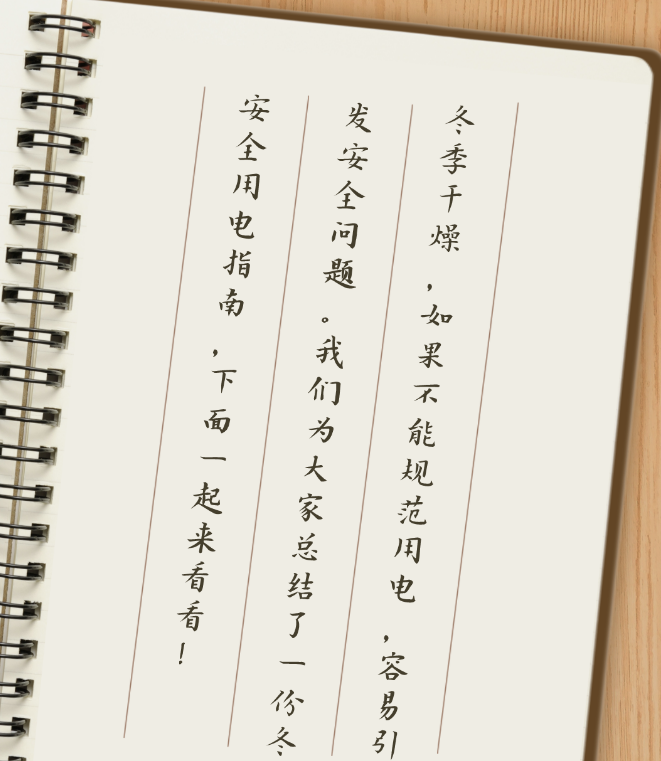 冬季干燥，如果不能规范用电，容易引
发安全问题。我们为大家总结了一份冬
安全用电指南，下面一起来看看！